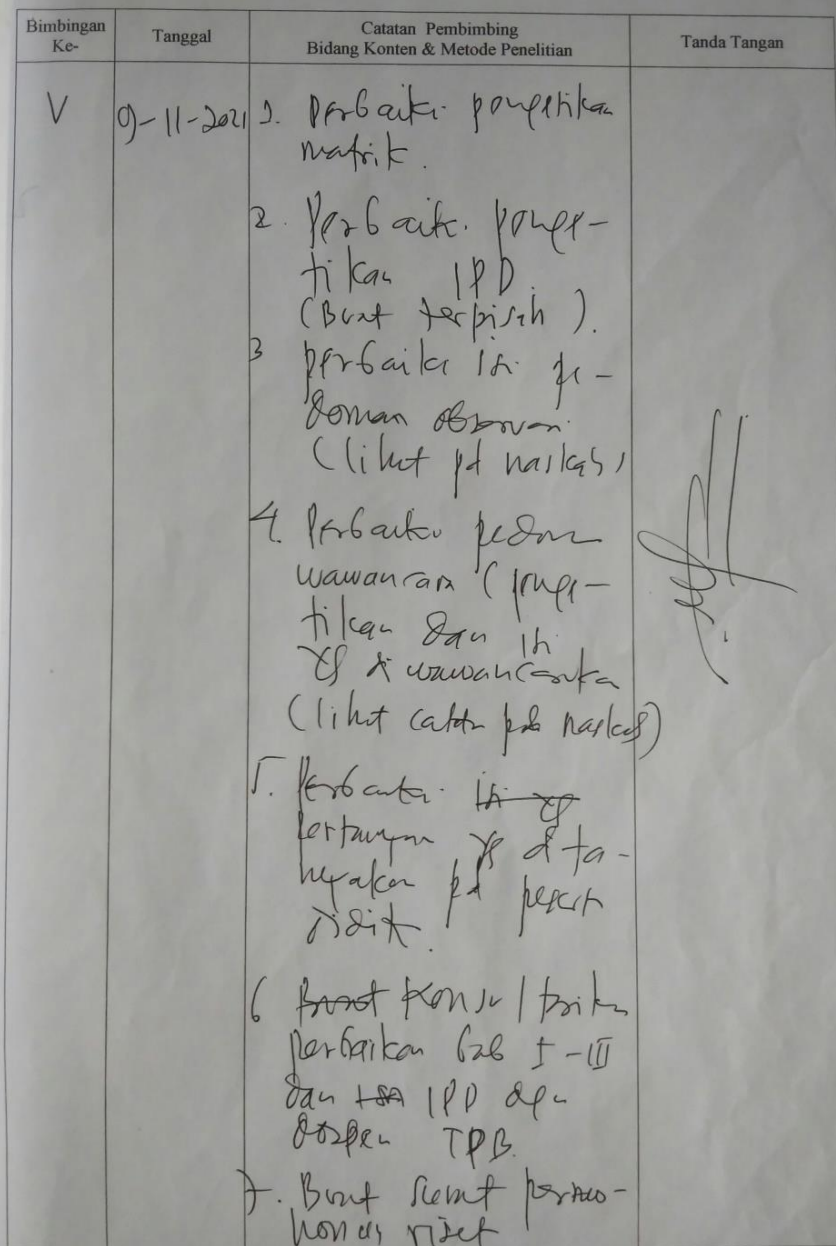 Bimbingan Ke-
Tanggal
Catatan Pembimbing
Bidang Konten & Metode Penelitian
Tanda Tangan
V
9-11-2021
1. Perbaiki pengetikan
matrik.
2. Perbaiki penge-
tikan IPD.
(Buat terpisah).
3 perbaiki isi pe-
doman observasi
(lihat pd naskah)
4. Perbaiki pedoman
wawancara (penge-
tikan dan isi
yg di wawancarka
(lihat cattn pada naskah)
5. Perbaiki isi yg
pertanyaan yg di ta-
nyakan pd peserta
didik.
6 Buat Konsultasikan
perbaikan bab I-III
dan IPD dgn
dosen TPB.
7. Buat surat permo-
honan riset